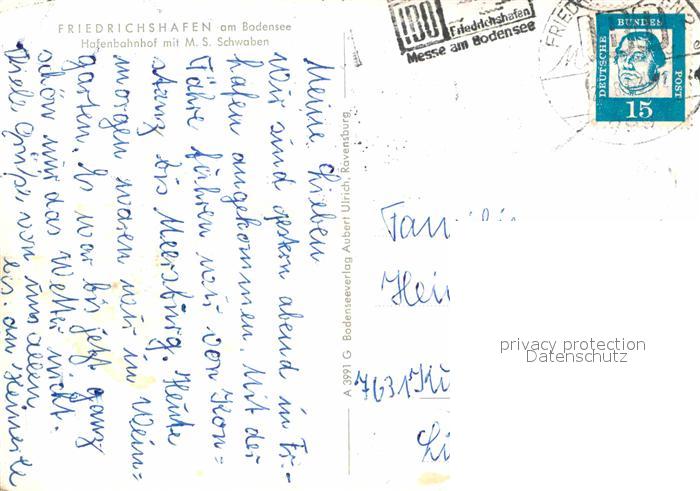 FRIEDRICHSHAFEN am Bodensee
Hafenbahnhof mit M. S. Schwaben
Meine Lieben
Wir sind gestern abend in Fri-
hafen angekommen. Mit der
Fähre fuhren wir von Kon=
stanz bis Meersburg. Heute
morgen waren wir in Wein=
garten. Es war bis jetzt ganz
schön nur das Wetter nicht.
Viele Grüße von uns allen
bis. an Heinerle
A 3991 G Bodenseeverlag Aubert Ulrich, Ravensburg
IBO
Friedrichshafen
Messe am Bodensee
FRIED
DEUTSCHE BUNDES POST
15
Fam
Hei
7631 Kü
privacy protection
Datenschutz